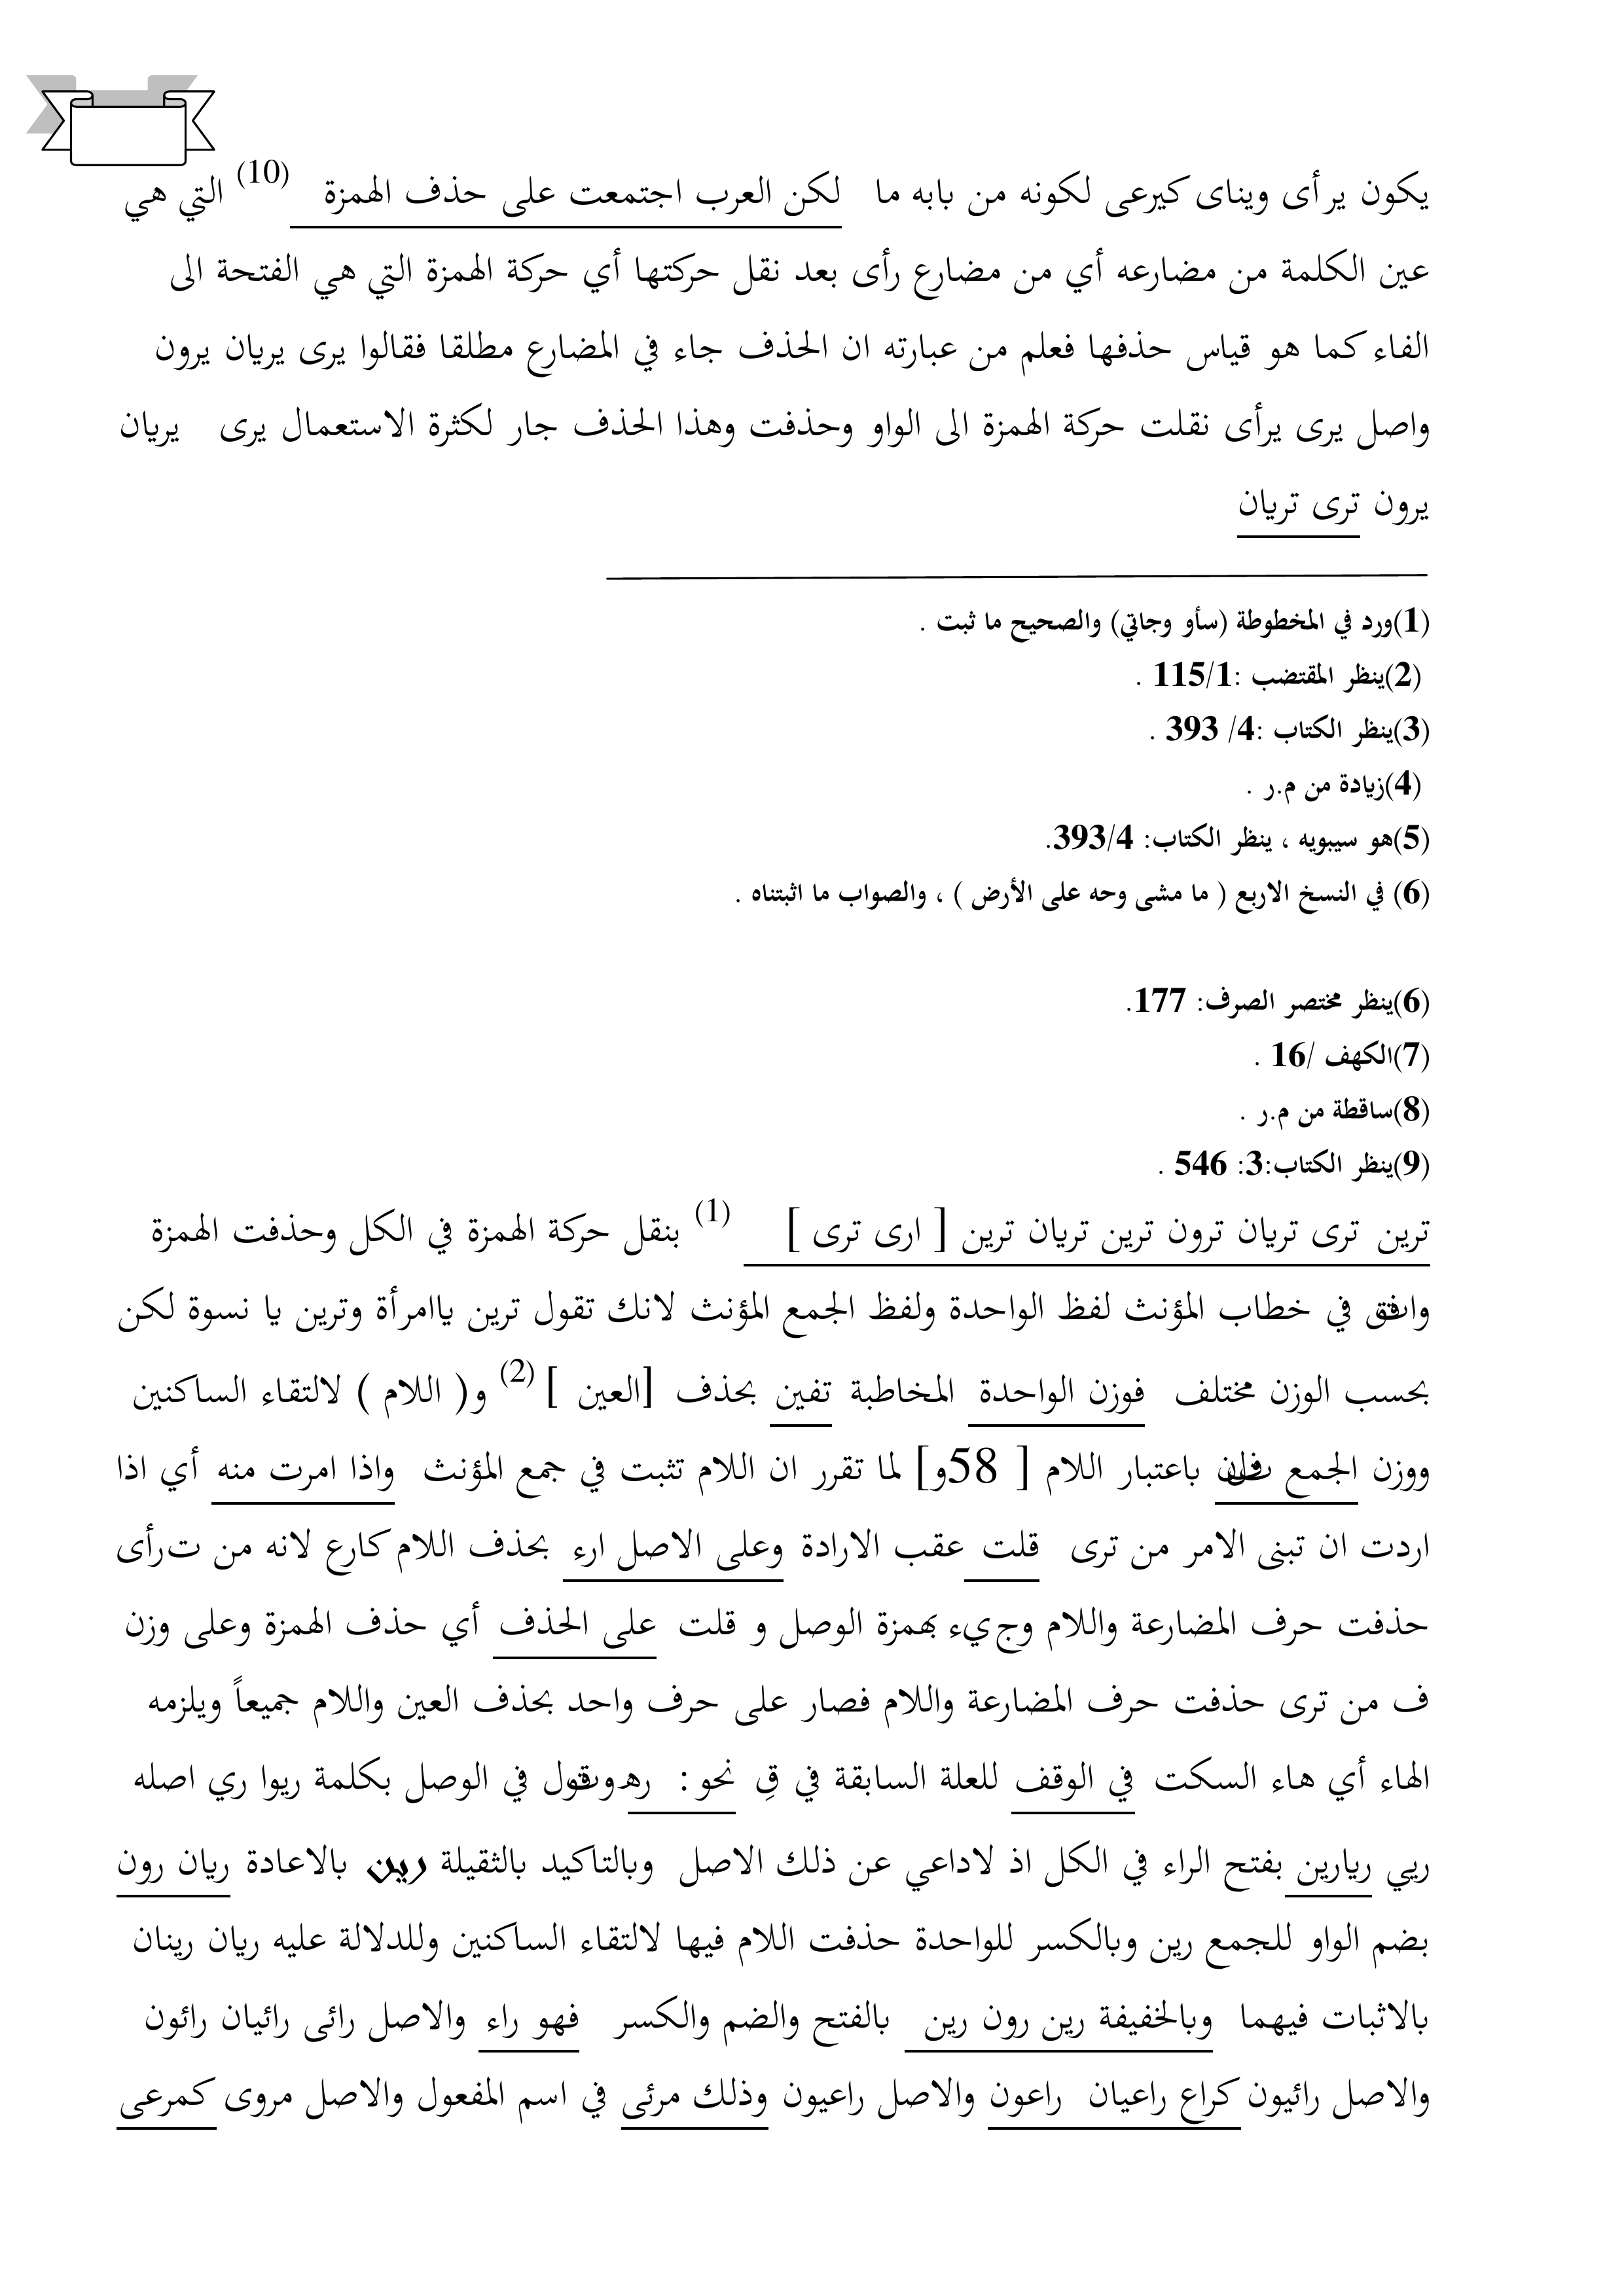 يكون يرأى ويناى كيرعى لكونه من بابه ما لكن العرب اجتمعت على حذف الهمزة (10) التي هي
عين الكلمة من مضارعه أي من مضارع رأى بعد نقل حركتها أي حركة الهمزة التي هي الفتحة الى
الفاء كما هو قياس حذفها فعلم من عبارته ان الحذف جاء في المضارع مطلقا فقالوا يرى يريان يرون
واصل يرى يرأى نقلت حركة الهمزة الى الواو وحذفت وهذا الحذف جار لكثرة الاستعمال يرى يريان
يرون ترى تريان
(1)ورد في المخطوطة (سأو وجاتي) والصحيح ما ثبت .
(2)ينظر المقتضب :115/1 .
(3)ينظر الكتاب :4/ 393 .
(4)زيادة من م.ر .
(5)هو سيبويه ، ينظر الكتاب: 393/4.
(6) في النسخ الاربع ( ما مشى وحه على الأرض ) ، والصواب ما اثبتناه .
(6)ينظر مختصر الصرف: 177.
(7)الكهف /16 .
(8)ساقطة من م.ر .
(9)ينظر الكتاب:3: 546 .
ترين ترى تريان ترون ترين تريان ترين [ ارى ترى ] (1) بنقل حركة الهمزة في الكل وحذفت الهمزة
واتفق في خطاب المؤنث لفظ الواحدة ولفظ الجمع المؤنث لانك تقول ترين ياامرأة وترين يا نسوة لكن
بحسب الوزن مختلف فوزن الواحدة المخاطبة تفين بحذف [العين ] (2) و( اللام ) لالتقاء الساكنين
ووزن الجمع تفلن باعتبار اللام [ 58و] لما تقرر ان اللام تثبت في جمع المؤنث واذا امرت منه أي اذا
اردت ان تبنى الامر من ترى قلت عقب الارادة وعلى الاصل ارء بحذف اللام كارع لانه من ترأى
حذفت حرف المضارعة واللام وجيء بهمزة الوصل و قلت على الحذف أي حذف الهمزة وعلى وزن
ف من ترى حذفت حرف المضارعة واللام فصار على حرف واحد بحذف العين واللام جميعاً ويلزمه
الهاء أي هاء السكت في الوقف للعلة السابقة في قِ نحو : ره وتقول في الوصل بكلمة ريوا ري اصله
ريي ريارين بفتح الراء في الكل اذ لاداعي عن ذلك الاصل وبالتاكيد بالثقيلة رين بالاعادة ريان رون
بضم الواو للجمع رين وبالكسر للواحدة حذفت اللام فيها لالتقاء الساكنين وللدلالة عليه ريان رينان
بالاثبات فيهما وبالخفيفة رين رون رين بالفتح والضم والكسر فهو راء والاصل رائى رائيان رائون
والاصل رائيون كراع راعيان راعون والاصل راعيون وذلك مرئى في اسم المفعول والاصل مروى كمرعى